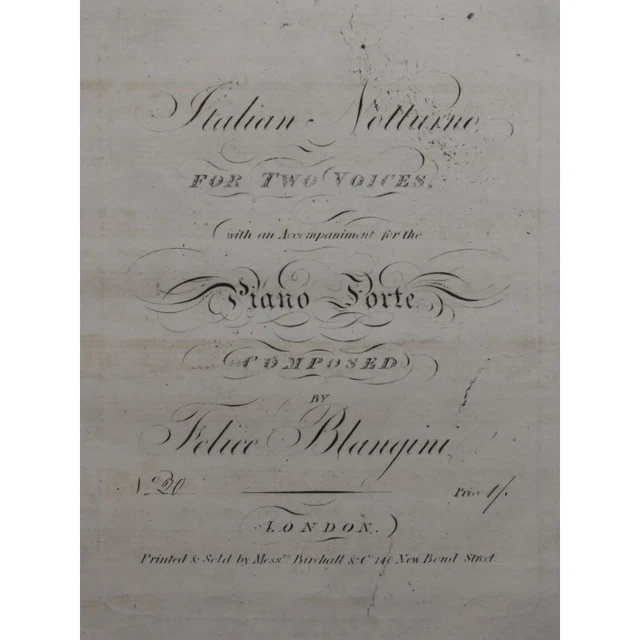 Italian Notturno
FOR TWO VOICES,
with an Accompaniment for the
Piano Forte
COMPOSED
BY
Felice Blangini
No. 20 Price 1/.
LONDON.
Printed & Sold by Messrs. Birchall & Co. 140 New Bond Street